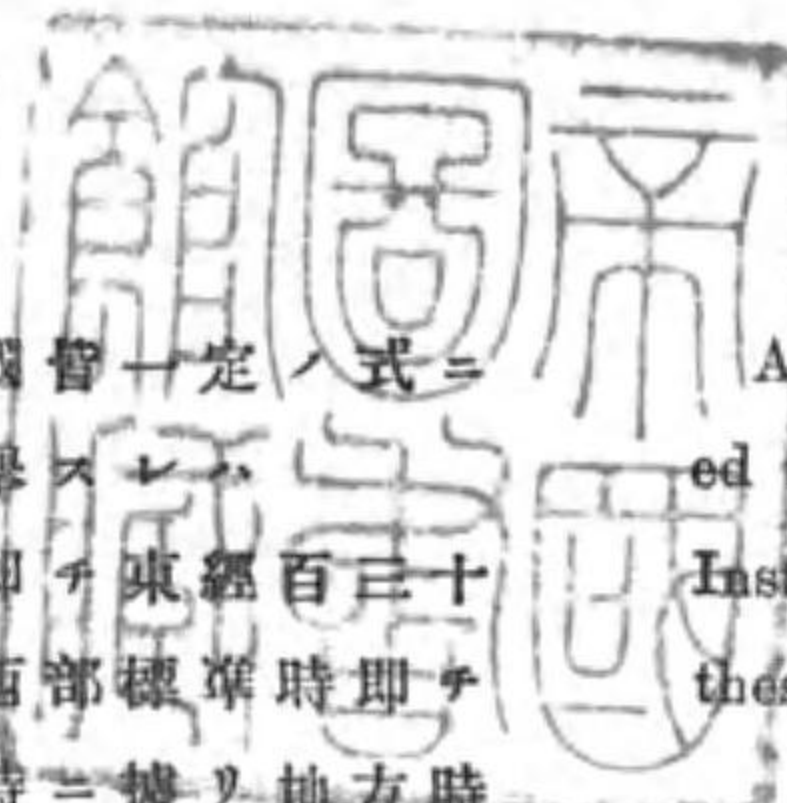 帝國
圖書
館藏
國皆一定ノ式ニ
スレハ
即チ東經百三十
西部標準時即チ
時ニ據リ地方時
A
ed
Inst
thes